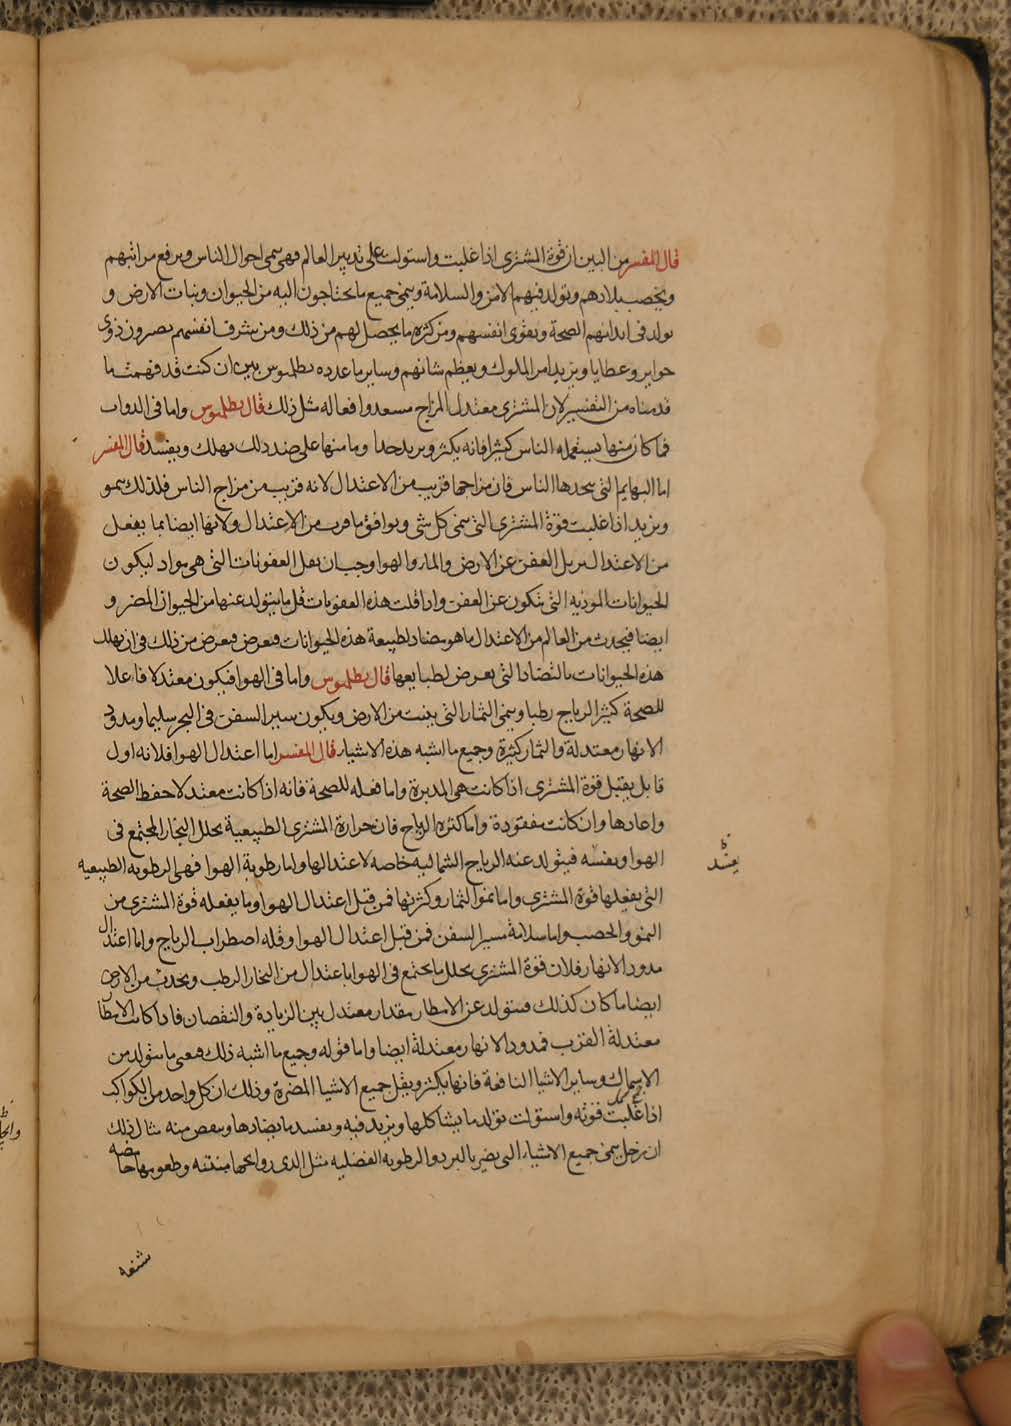 قال المفسر من البين ان قوة المشترى اذا غلبت واستولت على تدبير العالم فهى سمى احوال الناس ويرفع مراتبهم
ويخصب بلادهم ويولد فيهم الامن والسلامة وينمى جميع ما يحتاجون اليه من الحيوان ونبات الارض و
يولد فى ابدانهم الصحة ويقوى انفسهم ومن كثره ما يحصل لهم من ذلك ومن شرف انفسهم يصيرون ذوى
جوايز وعطايا ويزيد امر الملوك ويعظم شانهم وساير ما عدده بطلميوس بين ان كنت قد فهمت ما
قدمناه من التفسير لان المشترى معتدل المزاج مسعد وافعاله مثل ذلك قال بطلميوس واما فى الدواب
فما كان منها يستعمله الناس كثيرا فانه يكثر ويزيد جدا وما منها على ضد ذلك يهلك ويفسد قال المفسر
اما البهايم التى يتخذها الناس فان مزاجها قريب من الاعتدال لانه قريب من مزاج الناس فلذلك ينمو
ويزيد اذا غلبت قوة المشترى التى ينمى كل شى ويوافق ما قرب من الاعتدال ولانها ايضا بما يفعل
من الاعتدال يزيل العفن عن الارض والماء والهوا وجب ان يقل العفونات التى هى مواد ليكون
الحيوانات الموذيه التى يتكون عن العفن واذا قلت هذه العفونات قل ما يتولد عنها من الحيوان المضر و
ايضا فيحدث من العالم من الاعتدال ما هو مضاد لطبيعة هذه الحيوانات فيعرض فيعرض من ذلك فى ان يهلك
هذه الحيوانات بالتضاد التى يعرض لطبايعها قال بطلميوس واما فى الهوا فيكون معتدلا فاعلا
للصحة كثير الرياح رطبا وينمى الثمار التى ينبت من الارض ويكون سير السفن فى البحر سليما ومدود
الانهار معتدلة والثمار كثيرة وجميع ما اشبه هذه الاشياء قال المفسر اما اعتدال الهوا فلانه اول
قابل يقبل قوة المشترى اذا كانت هى المدبرة واما فعله للصحة فانه اذا كانت معتدلا حفظ الصحة
واعادها وان كانت مفقودة واما كثره الرياح فان حرارة المشترى الطبيعية يحلل البخار المجتمع فى
الهوا ويفشه فيتولد عنه الرياح الشماليه خاصه لاعتدالها واما رطوبة الهوا فهى الرطوبه الطبيعيه
التى يفعلها قوة المشترى واما نمو الثمار وكثرتها فمن قبل اعتدال الهوا وما يفعله قوة المشترى من
النمو والخصب واما سلامة سير السفن فمن قبل اعتدال الهوا وقله اضطراب الرياح واما اعتدال
مدود الانهار فلان قوة المشترى يحلل ما يجتمع فى الهوا باعتدال من البخار الرطب ويحدث من الارض
ايضا ما كان كذلك فيتولد عن الامطار مقدار معتدل بين الزيادة والنقصان فاذا كانت الامطار
معتدلة القرب فمدود الانهار معتدلة ايضا واما قوله وجميع ما اشبه ذلك فيعنى ما يتولد من
الاسماك وساير الاشيا النافعة فانها يكثر ويقل جميع الاشيا المضرة وذلك ان كل واحد من الكواكب
اذا غلبت قوته واستولت يولد ما يشاكلها ويزيد فيه ويفسد ما يضادها وينقص منه مثال ذلك
ان زحل ينمى جميع الاشياء التى يضر بالبرد والرطوبه الفضليه مثل الذى روايحها منتنه وطعومها حامضه
شنعه